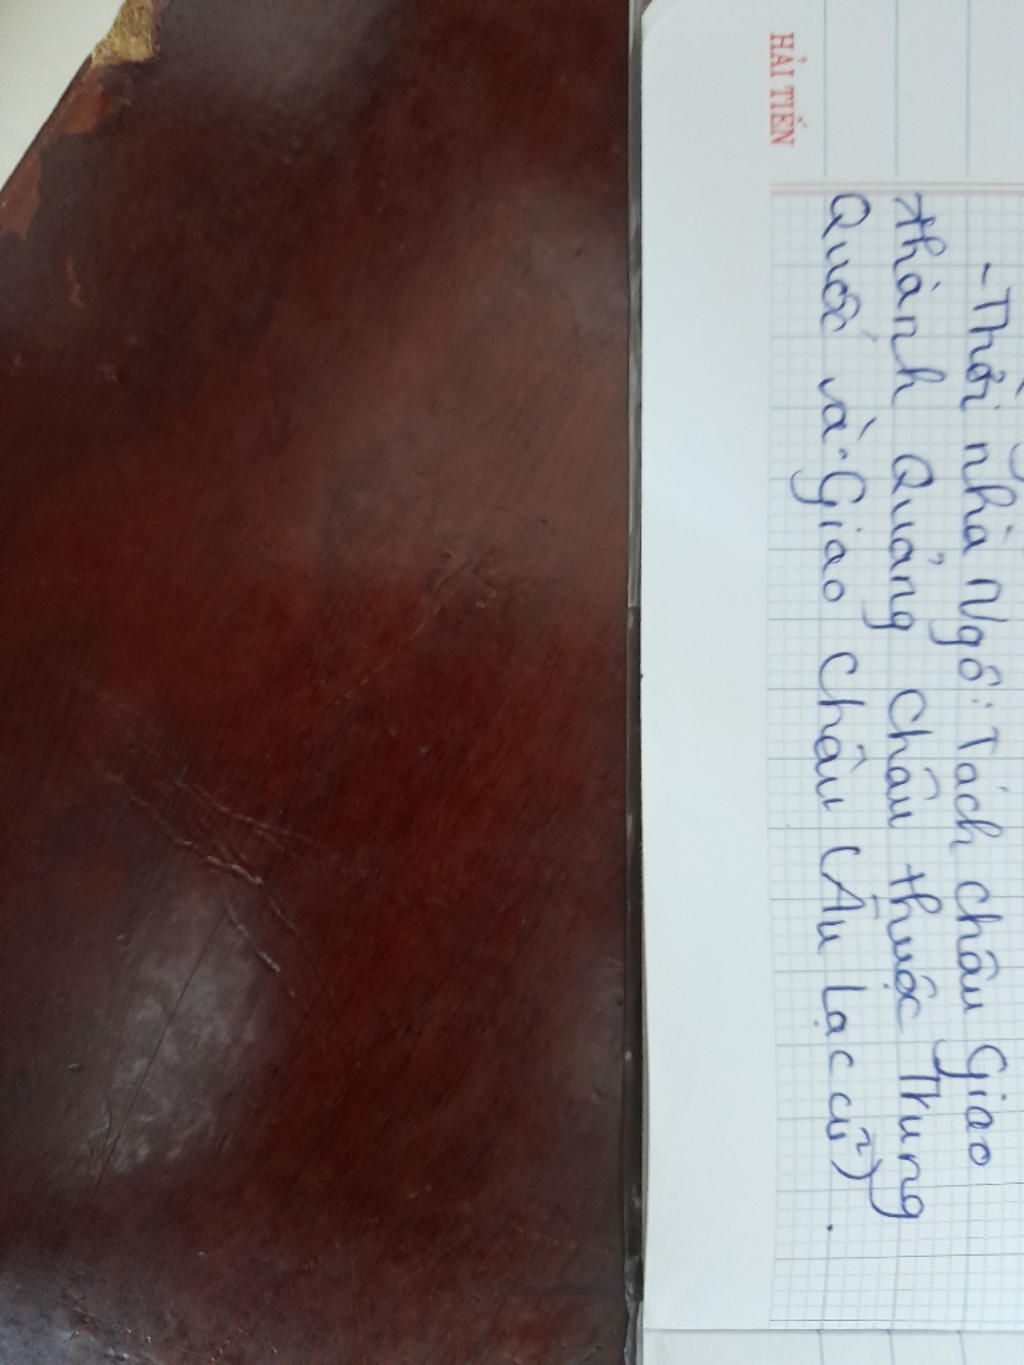 - Thời nhà Ngô: Tách châu Giao
thành Quảng Châu thuộc Trung
Quốc và Giao Châu (Âu Lạc cũ).
HẢI TIẾN